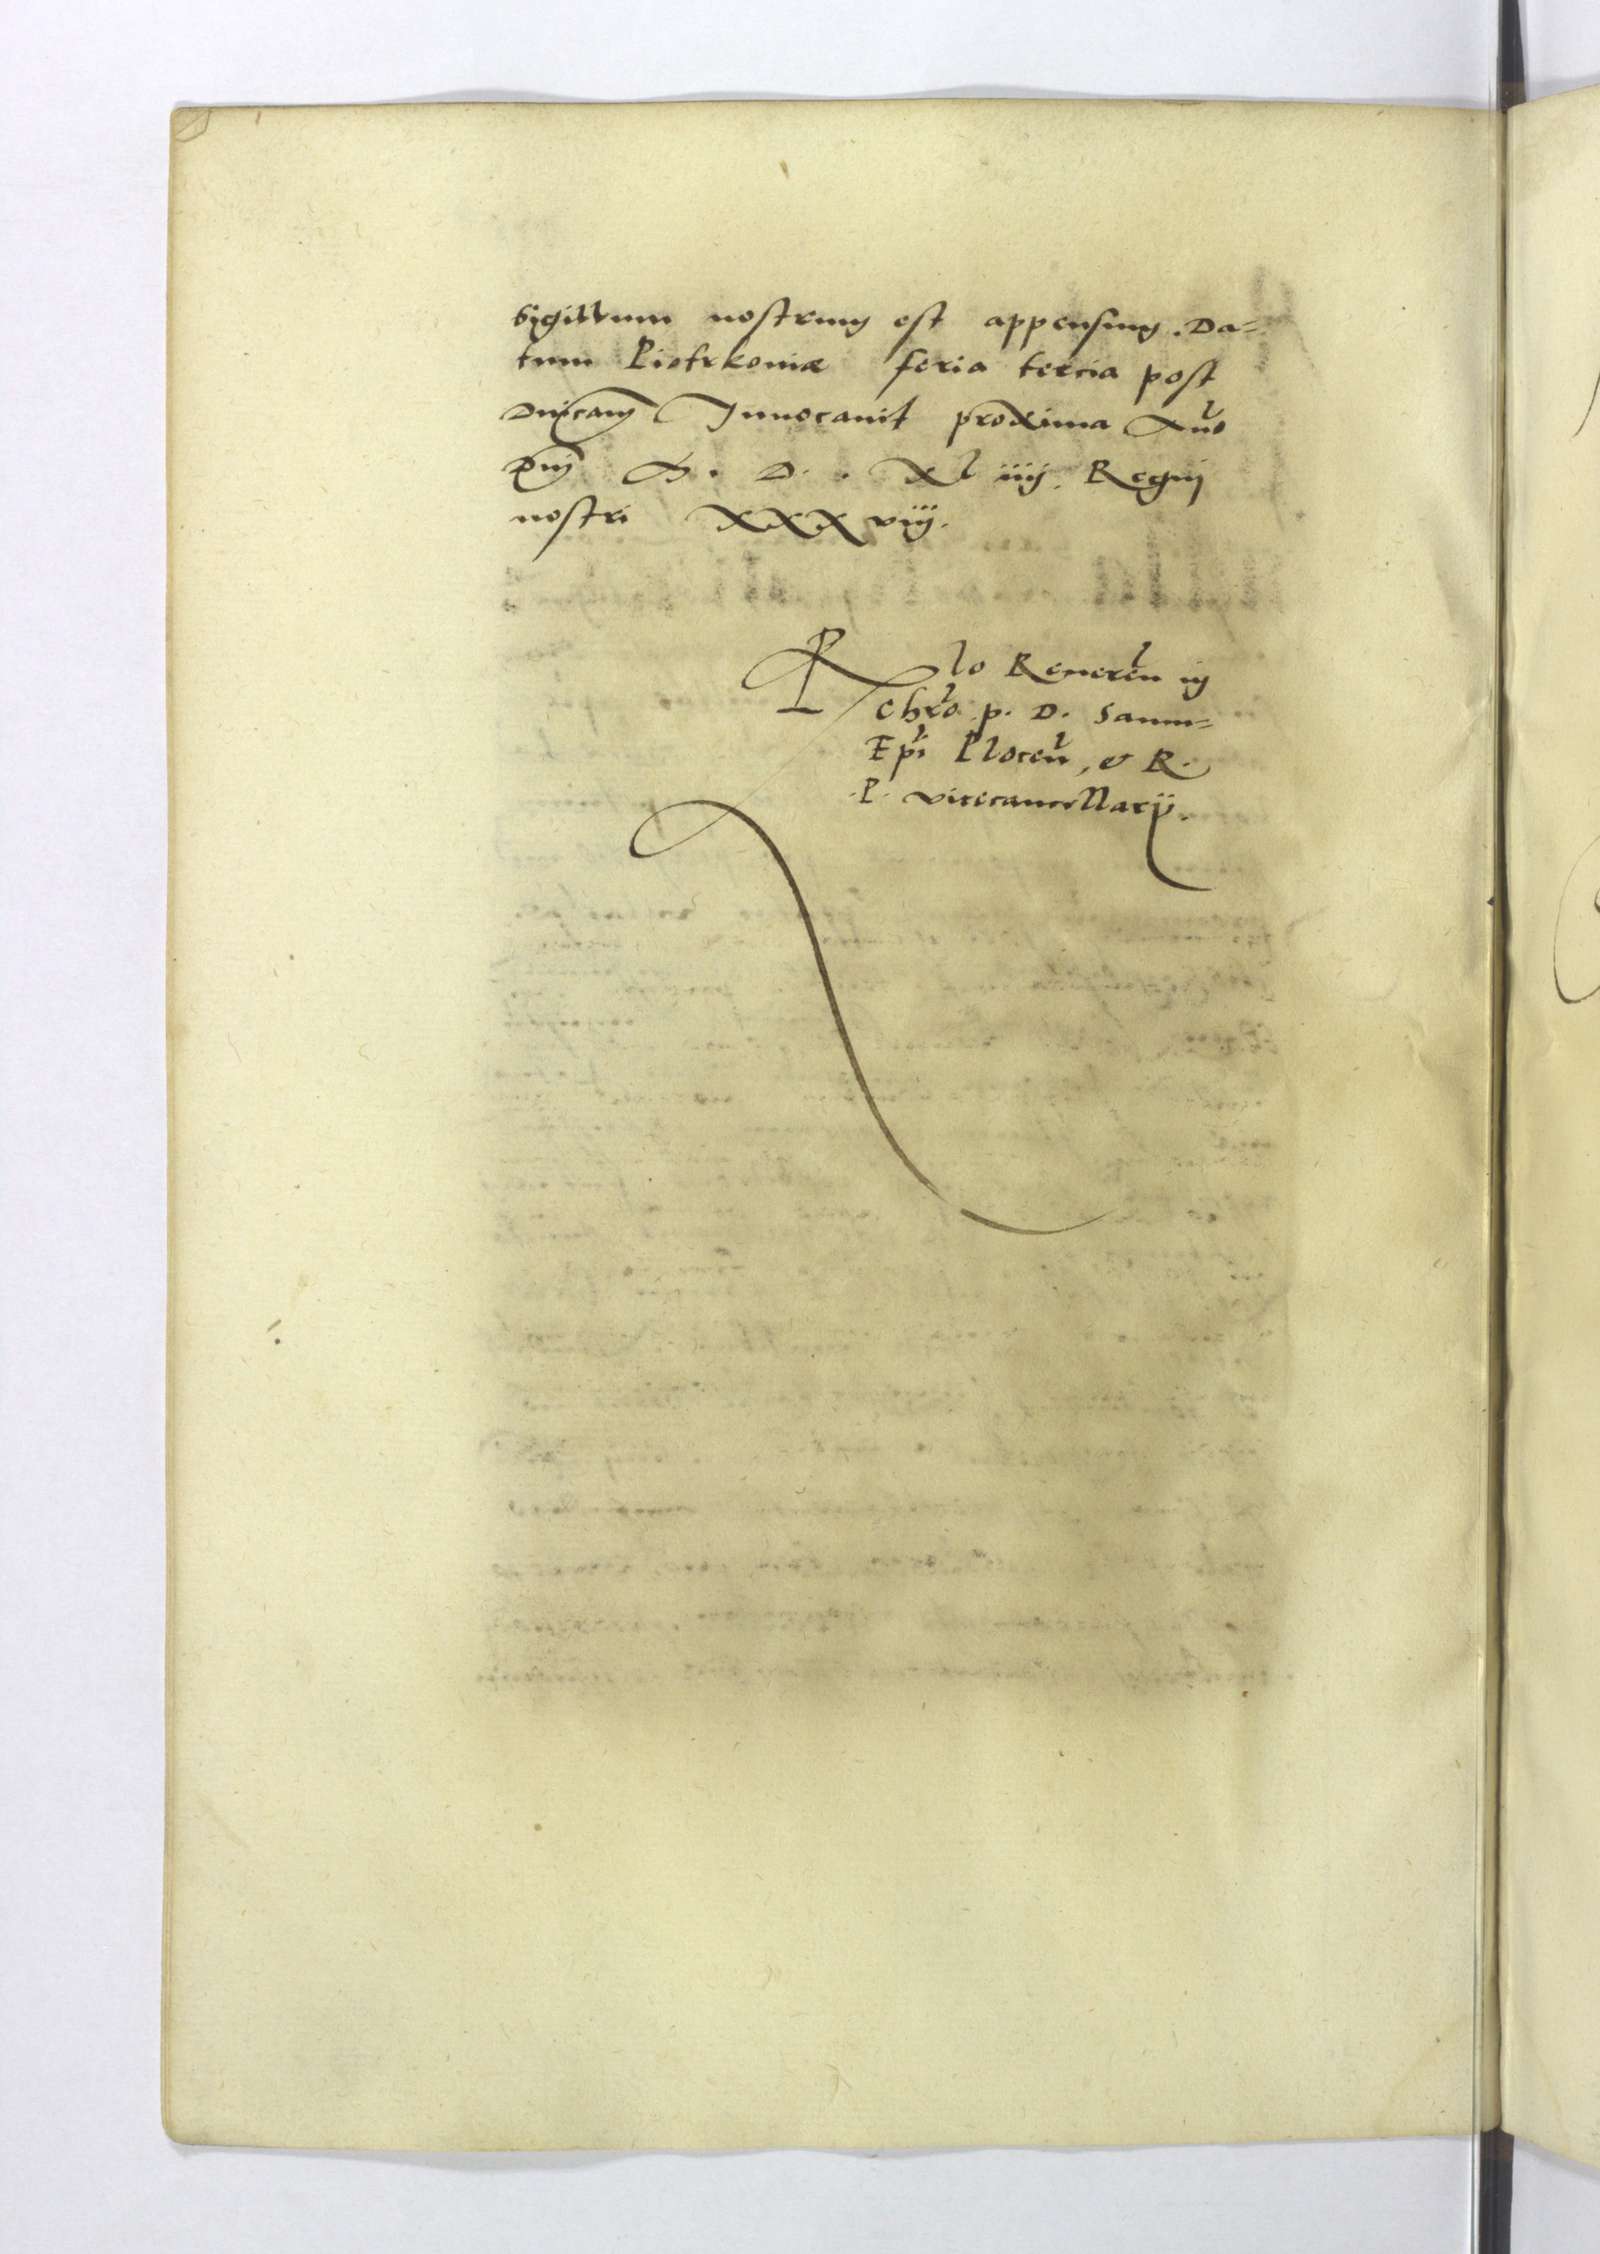 Sigillum nostrum est appensum. Da=
tum Piotrkoviæ feria tercia post
Dnicam Invocavit proxima Anno
Dni M. D. XL iiij. Regni
nostri XXX viij.
Rlo Reveren in
Chro p. D. Samu=
Epi Plocen, & R.
P. vicecancellarij.